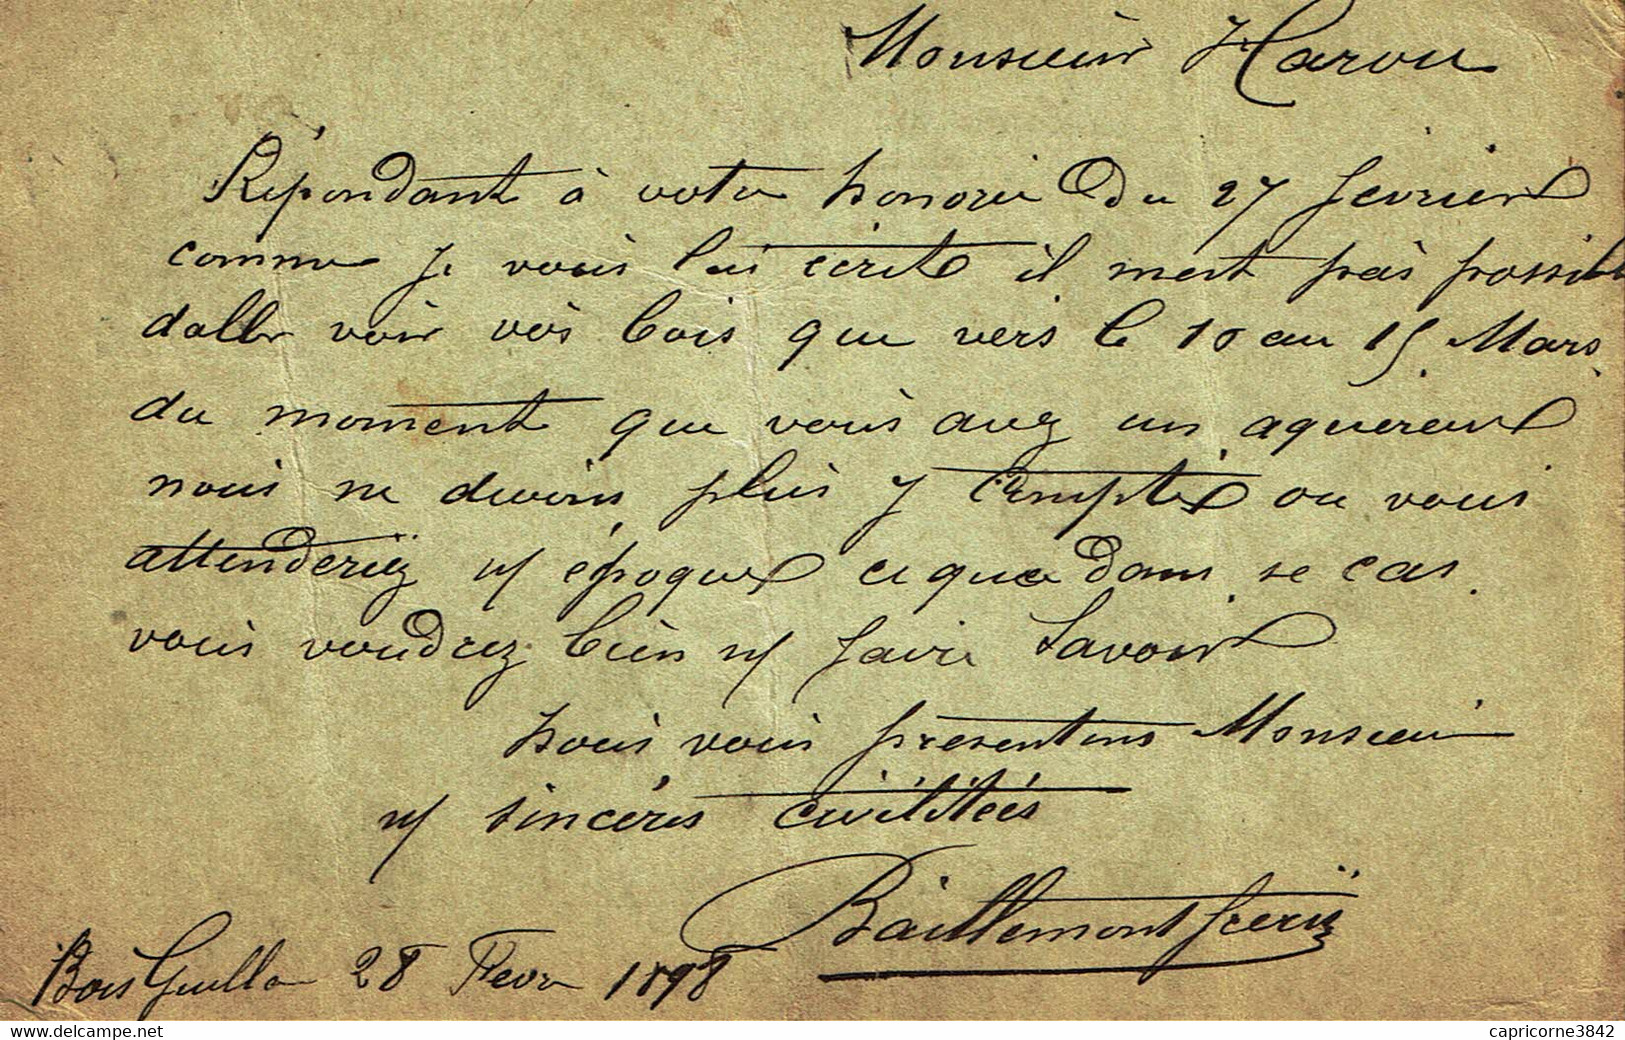 Monsieur Harou
Répondant à votre honorée du 27 fevrier
comme je vous lai écrit il mest pas possible
daller voir vos bois que vers le 10 au 15 Mars.
du moment que vous avez un aquereur
nous ne devons plus y compter ou vous
attenderiez n/ époque ce que dans se cas.
vous voudrez bien n/ faire savoir
Nous vous presentons Monsieur
n/ sincéres civilitées
Baillemont freres
Bois Guillau 28 Fevr 1898
www.delcampe.net
capricorne3842